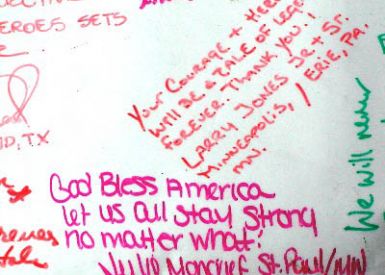 EROES SETS
D, TX
YOUR COURAGE + HERO
WILL BE A TALE OF LEGEN
FOREVER. THANK YOU!!
LARRY JONES JR + SR.
MINNEAPOLIS, / ERIE, PA.
MN.
God Bless America
let us all stay strong
no matter what!
Moncrief St. Paul/MN
We will never